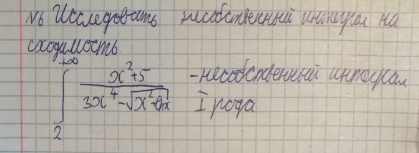 №6. Исследовать несобственный интеграл на
сходимость
+∞
∫ x²+5 / 3x⁴-√x² - несобственный интеграл
2 I рода